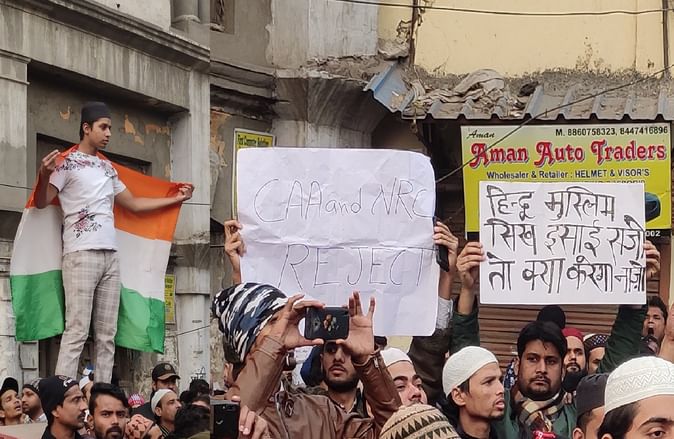 CAA and NRC
REJECT
Aman
M. 8860758323, 8447416896
Aman Auto Traders
Wholesaler & Retailer : HELMET & VISOR'S
हिन्दू मुस्लिम
सिख इसाई राजी
तो क्या करेगा नाज़ी